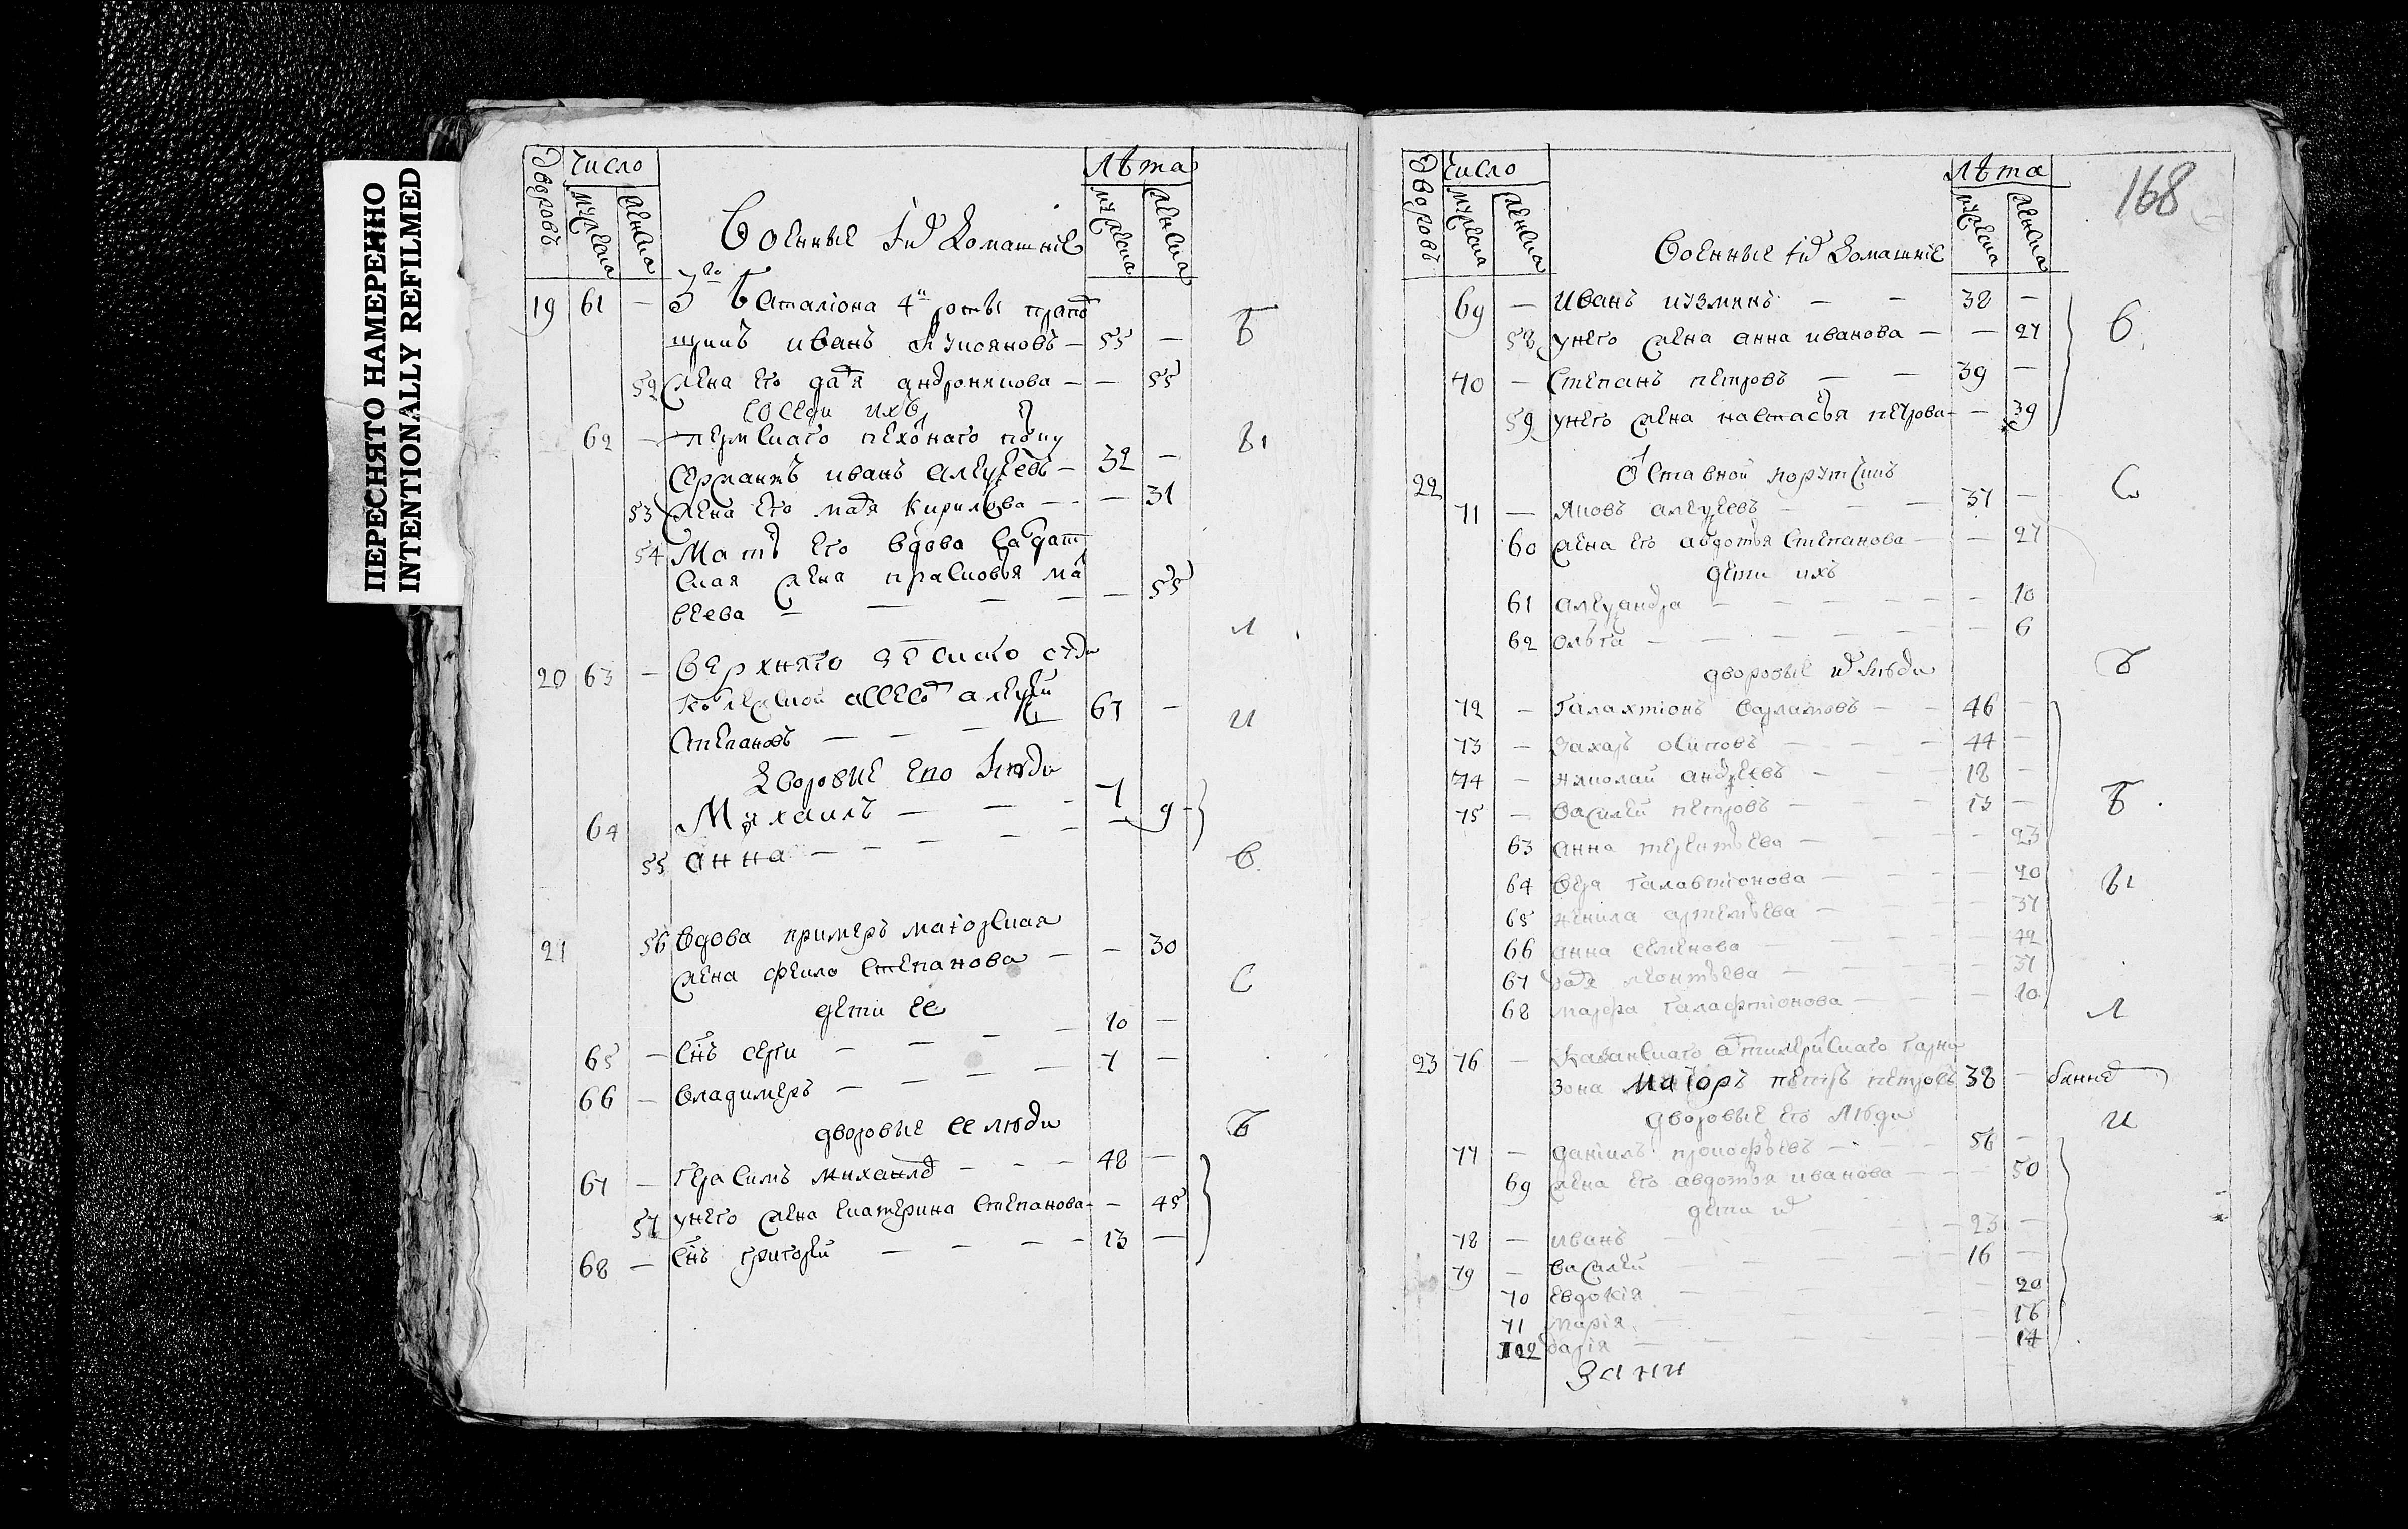 ПЕРЕСНЯТО НАМЕРЕННО
INTENTIONALLY REFILMED
Дворовъ Число Лѣта
мужеска женска мужеска женска
Военные и домашние
19 61 — 3го Баталиона 4й роты прапо
щикъ иванъ — 55 —
52 жена его дарья андроникова — — 55
соседи ихъ
62 — пермскаго пехотнаго полку
сержантъ иванъ алексеевъ — 32 —
53 жена его марья кирилова — — 31
54 Мать его вдова салдат
ская жена прасковья мат
веева — — 55
20 63 — Верхняго земскаго суда
колежской асесоръ алексей
Степановъ — 67 —
Дворовые его люди
64 Михаилъ — 7
55 анна — — 9
21 56 Вдова примеръ маіорская
жена фекла степанова — — 30
дети ее
65 — снъ серги — 10 —
66 — владимеръ — 7 —
дворовые ее люди
67 — герасимъ михаилов — 48 —
57 унего жена екатерина степанова — — 45
68 — снъ григорей — 13 —
168
Дворовъ Число Лѣта
мужеска женска мужеска женска
Военные и домашние
69 — иванъ кузминъ — 38 —
58 унего жена анна иванова — — 27
70 — степанъ петровъ — 39 —
59 унего жена настасья петрова — — 39
22 Отставной порутчикъ
71 — яковъ алексеевъ — 37 —
60 жена его авдотья степанова — — 27
дети ихъ
61 александра — — 10
62 ольга — — 6
дворовые их люди
72 — галахтіонъ варламовъ — 46 —
73 — захаръ осиповъ — 44 —
74 — николай андреевъ — 18 —
75 — василей петровъ — 13 —
63 анна терентьева — — 23
64 вера галавтіонова — — 20
65 ненила артемьева — — 37
66 анна семенова — — 72
67 дарья леонтьева — — 37
68 галафтіонова — — 10
23 76 — Казанскаго гарни
зона Маіоръ петръ петровъ 38 —
дворовые его люди
77 — данилъ прокофьевъ — 56 —
69 жена его авдотья иванова — — 50
дети их
78 — иванъ — 23 —
79 — василей — 16 —
70 евдокія — — 20
71 марія — — 16
72 дарія — — 14